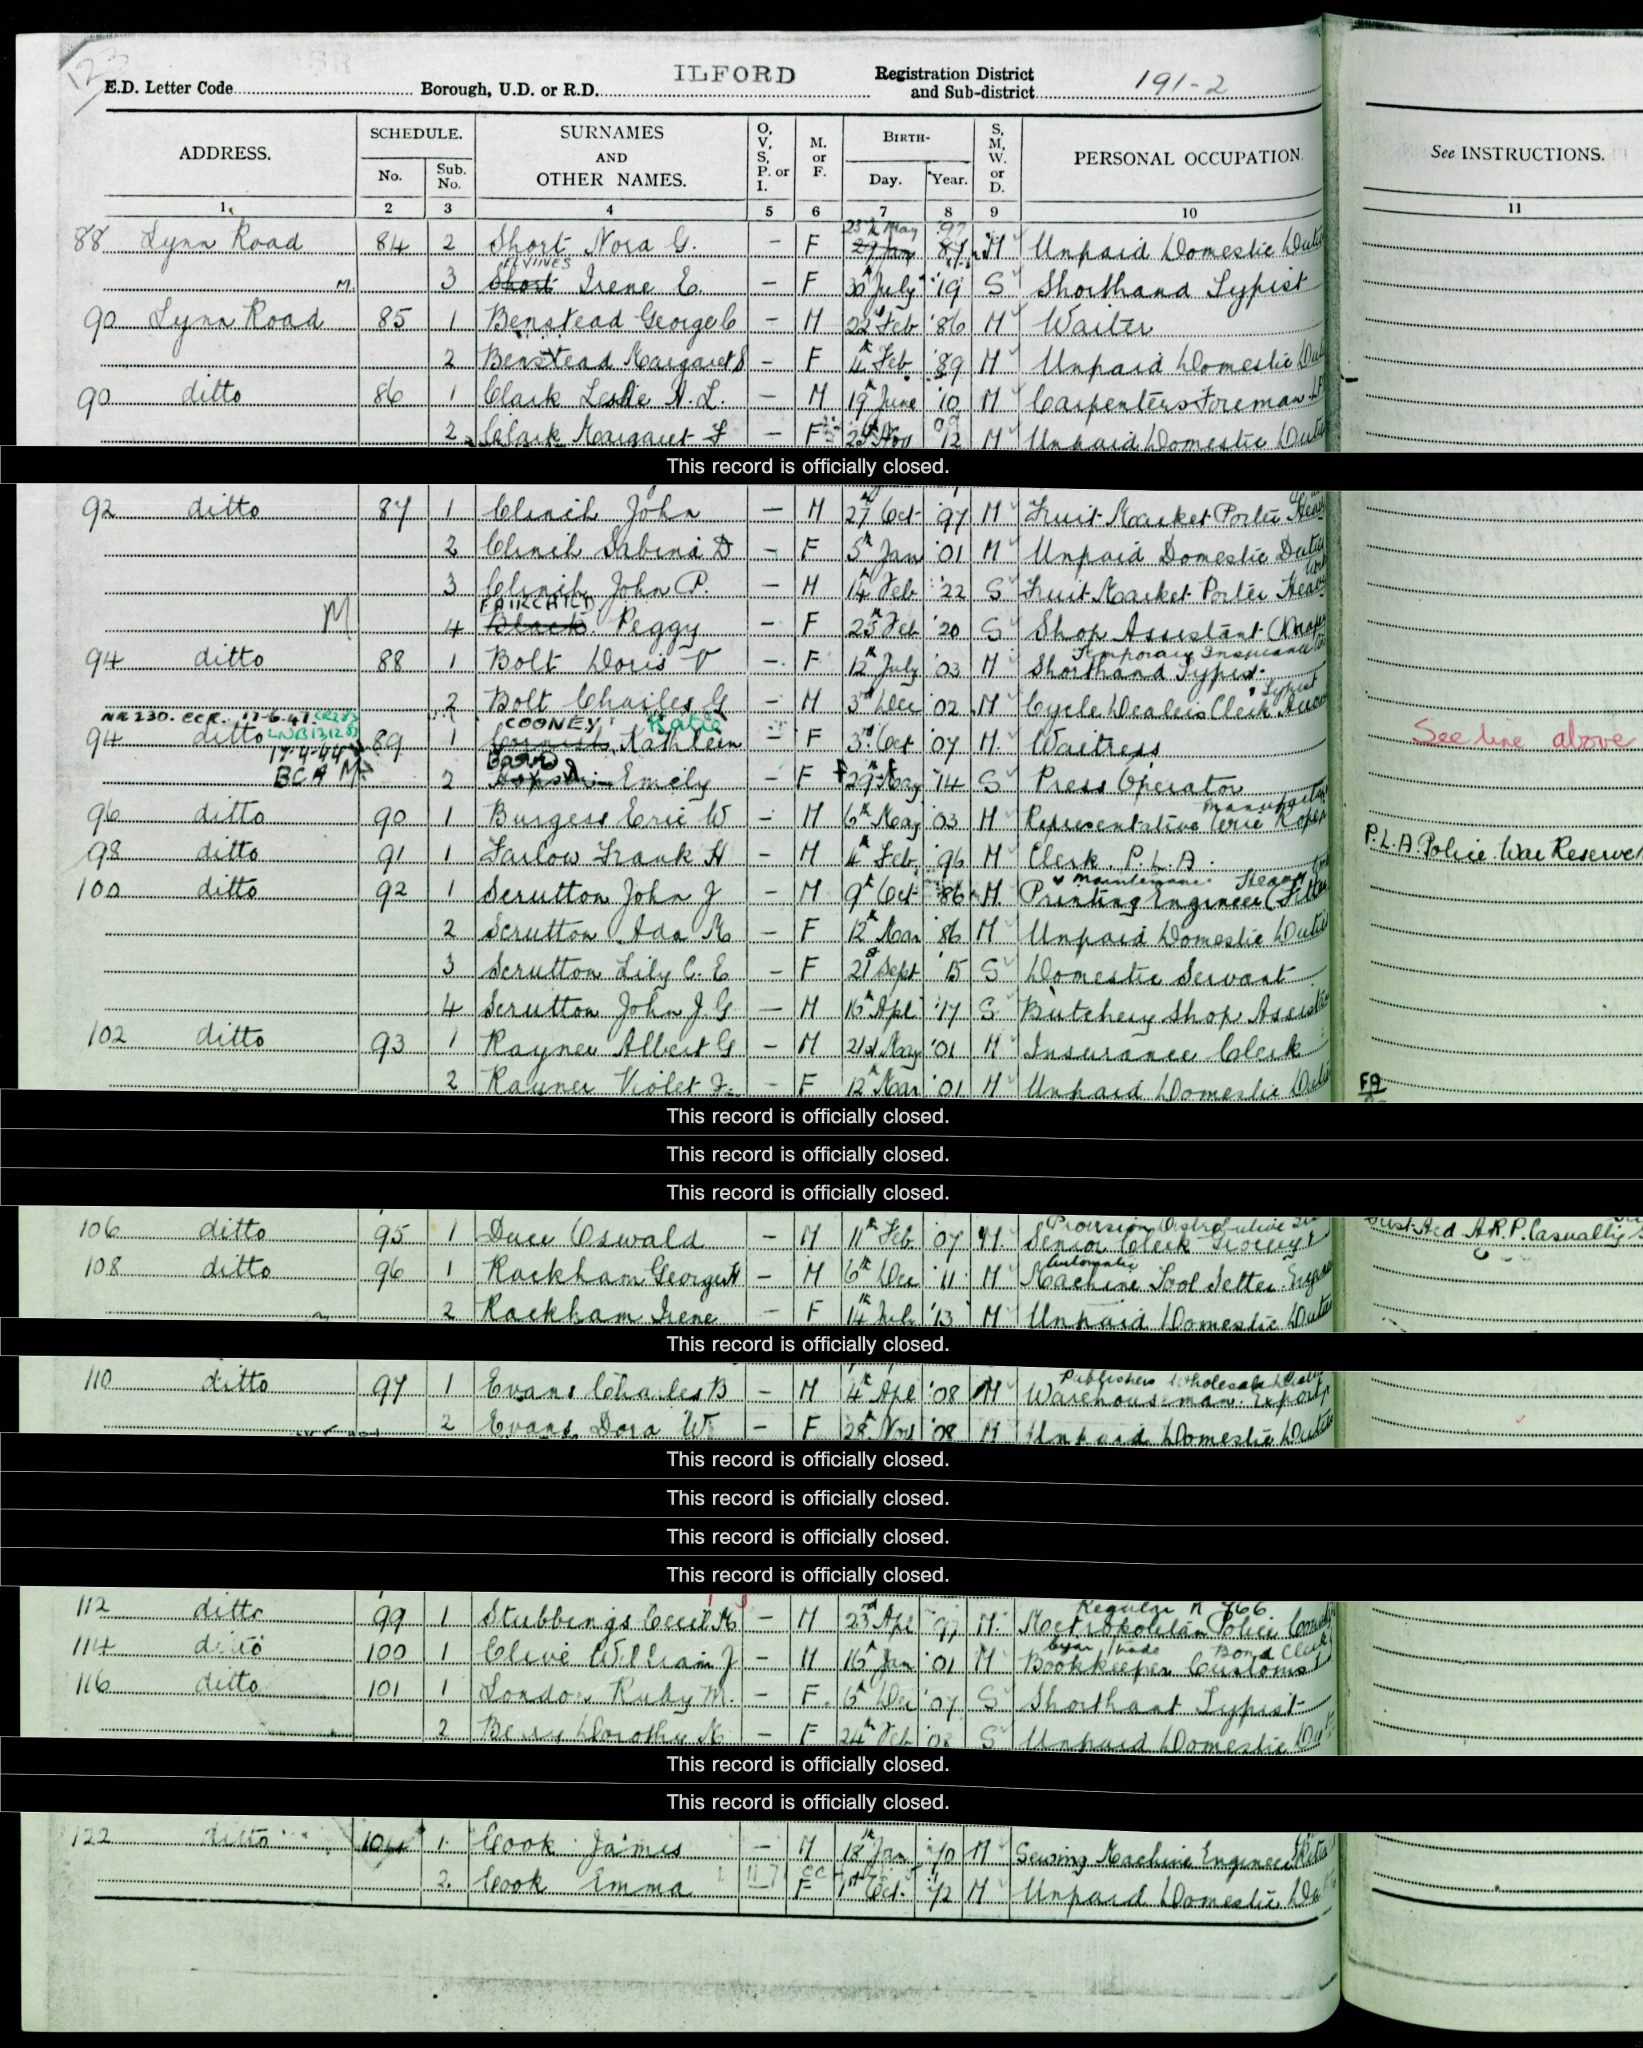 ILFORD
E.D. Letter Code Borough, U.D. or R.D. Registration District and Sub-district 191-2
ADDRESS. SCHEDULE. No. Sub. No. SURNAMES AND OTHER NAMES. O, V, S, P. or I. M. or F. BIRTH- Day. Year. S, M, W. or D. PERSONAL OCCUPATION. See INSTRUCTIONS.
1 2 3 4 5 6 7 8 9 10 11
25th May '97
88 Lynn Road 84 2 Short Nora G. — F 29 Jan 87 M Unpaid Domestic Duties
M. 3 Short Irene E. — F 30 July '19 S Shorthand Typist
90 Lynn Road 85 1 Benstead George C — M 22 Feb '86 M Waiter
2 Benstead Margaret S — F 4th Feb '89 M Unpaid Domestic Duties
90 ditto 86 1 Clark Leslie A. L. — M 19th June '10 M Carpenters Foreman
2 Clark Margaret F — F 25 Nov '12 M Unpaid Domestic Duties
This record is officially closed.
92 ditto 87 1 Clinch John — M 27th Oct '97 M Fruit Market Porter Heavy
2 Clinch Sabina D — F 5th Jan '01 M Unpaid Domestic Duties
3 Clinch John P. — M 14th Feb '22 S Fruit Market Porter Heavy
FAIRCHILD
M 4 Black Peggy — F 25th Feb '20 S Shop Assistant
Temporary Insurance
94 ditto 88 1 Bolt Doris V — F 12th July '03 M Shorthand Typist
Typist
2 Bolt Charles G — M 3rd Dec '02 M Cycle Dealers Clerk
NR230. ECR. 17-6-47 COONEY Katie
94 ditto 89 1 Cornish Kathleen — F 3rd Oct '07 M Waitress See line above
17-4-44
BCA M 2 Emily — F 29th May '14 S Press Operator
96 ditto 90 1 Burgess Eric W — M 6th May '03 M Representative Wire Ropes
98 ditto 91 1 Farlow Frank H — M 4th Feb '96 M Clerk P.L.A. P.L.A Police War Reserve
maintenance Heavy
100 ditto 92 1 Scrutton John J — M 9th Oct '86 M Printing Engineer (Fitter
2 Scrutton Ada M — F 12th Mar '86 M Unpaid Domestic Duties
3 Scrutton Lily C. E — F 21st Sept '15 S Domestic Servant
4 Scrutton John J. G — M 16th Apl '17 S Butchery Shop Assistant
102 ditto 93 1 Rayner Albert G — M 21st May '01 M Insurance Clerk
2 Rayner Violet F. — F 12th Mar '01 M Unpaid Domestic Duties FA
This record is officially closed.
This record is officially closed.
This record is officially closed.
Provision Distributive
106 ditto 95 1 Duce Oswald — M 11th Feb '07 M Senior Clerk Grocery A.R.P. Casualty
Automatic
108 ditto 96 1 Rackham George W — M 6th Dec '11 M Machine Tool Setter
2 Rackham Irene — F 14th July '13 M Unpaid Domestic Duties
This record is officially closed.
Publishers Wholesale
110 ditto 97 1 Evans Charles B — M 4th Apl '08 M Warehouseman Export
2 Evans Dora W — F 28th Nov '08 M Unpaid Domestic Duties
This record is officially closed.
This record is officially closed.
This record is officially closed.
This record is officially closed.
Regular
112 ditto 99 1 Stubbings Cecil M — M 23rd Apl '97 M Metropolitan Police
Trade Bond Clerk
114 ditto 100 1 Clive William J — M 16th Jan '01 M Bookkeeper Customs
116 ditto 101 1 London Ruby M. — F 6th Dec '07 S Shorthant Typist
2 Berry Dorothy M — F 24th Feb '08 S Unpaid Domestic Duties
This record is officially closed.
This record is officially closed.
122 ditto 104 1 Cook James — M 12th Jan '70 M Sewing Machine Engineer
2 Cook Emma F 1st Oct. '72 M Unpaid Domestic